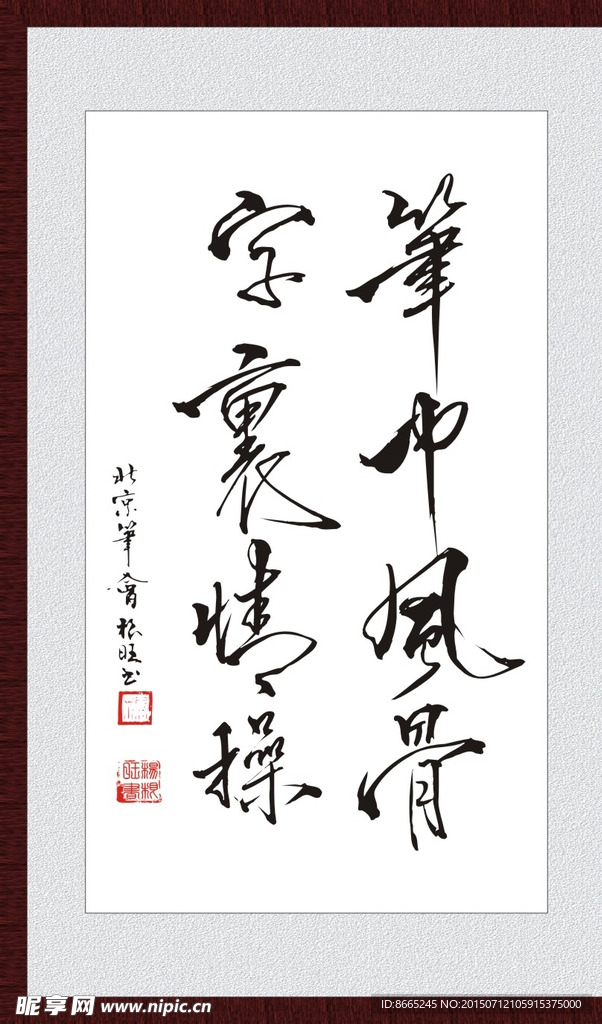 筆中風骨
字裏情操
北京筆會根旺書
昵享网 www.nipic.cn
ID:8665245 NO:20150712105915375000